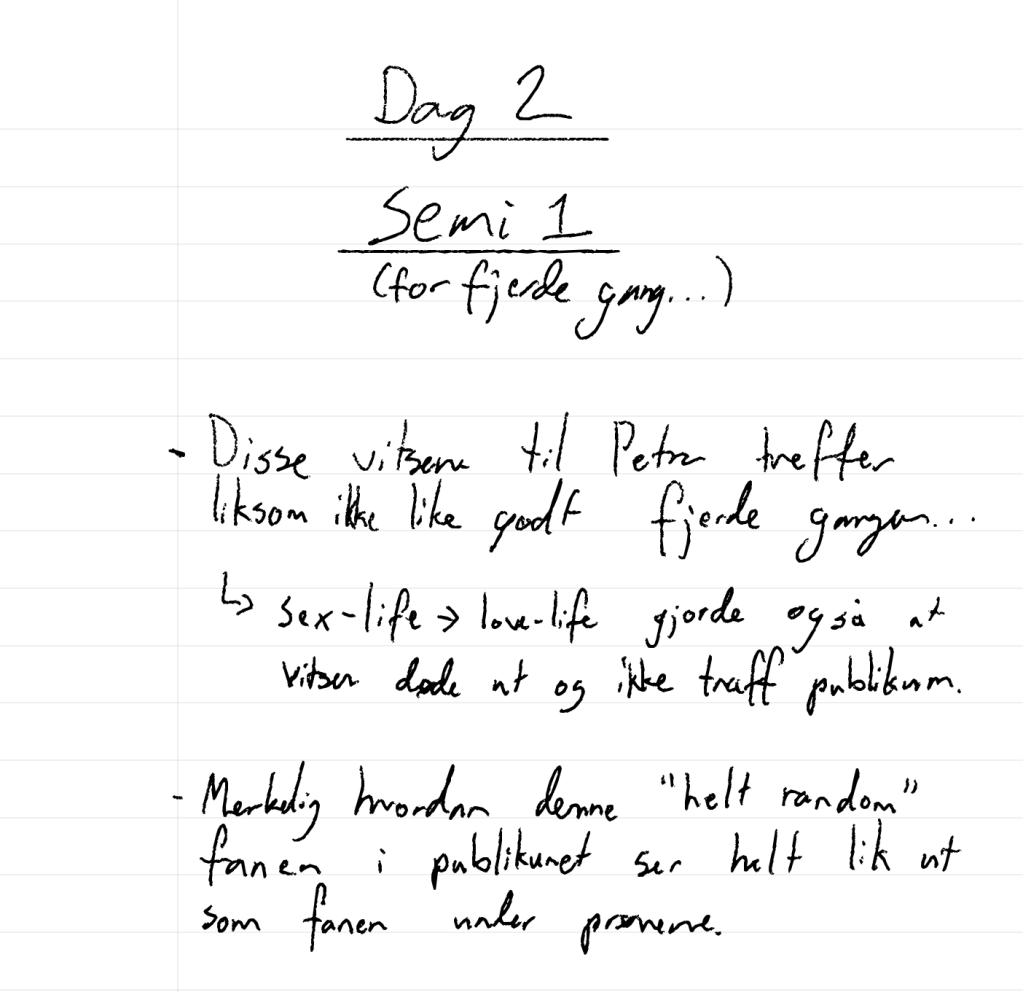 Dag 2
Semi 1
(for fjerde gang...)
- Disse vitsene til Petra treffer
liksom ikke like godt fjerde gangen...
↳ sex-life → love-life gjorde også at
vitsen døde ut og ikke traff publikum.
- Merkelig hvordan denne "helt random"
fanen i publikumet ser helt lik ut
som fanen under prøvene.